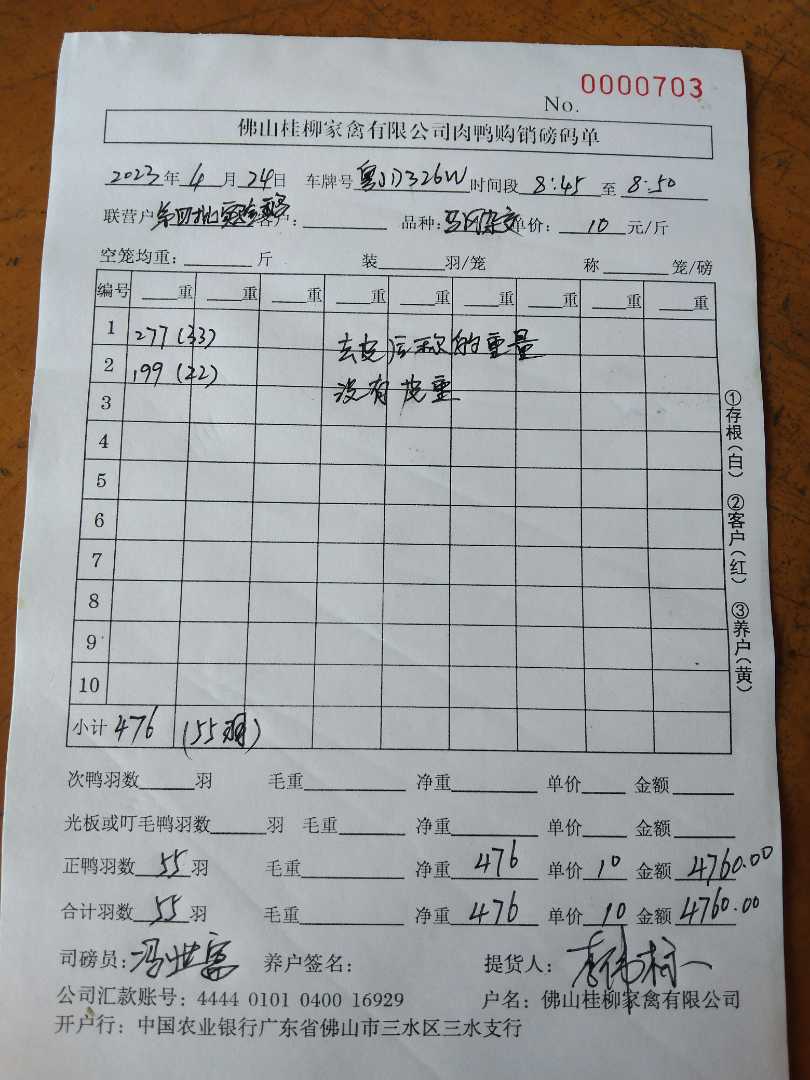 No. 0000703
佛山桂柳家禽有限公司肉鸭购销磅码单
2023年4月24日 车牌号 时间段 8:45 至 8:50
联营户 客户: 品种: 单价: 10 元/斤
空笼均重: 斤 装 羽/笼 称 笼/磅
编号 重 重 重 重 重 重 重 重 重
1 277 (33) 去皮后称的重量
2 199 (22) 没有皮重
3
4
5
6
7
8
9
10
小计 476 (55羽)
①存根(白) ②客户(红) ③养户(黄)
次鸭羽数 羽 毛重 净重 单价 金额
光板或叮毛鸭羽数 羽 毛重 净重 单价 金额
正鸭羽数 55 羽 毛重 净重 476 单价 10 金额 4760.00
合计羽数 55 羽 毛重 净重 476 单价 10 金额 4760.00
司磅员: 冯业富 养户签名: 提货人:
公司汇款账号: 4444 0101 0400 16929 户名: 佛山桂柳家禽有限公司
开户行: 中国农业银行广东省佛山市三水区三水支行